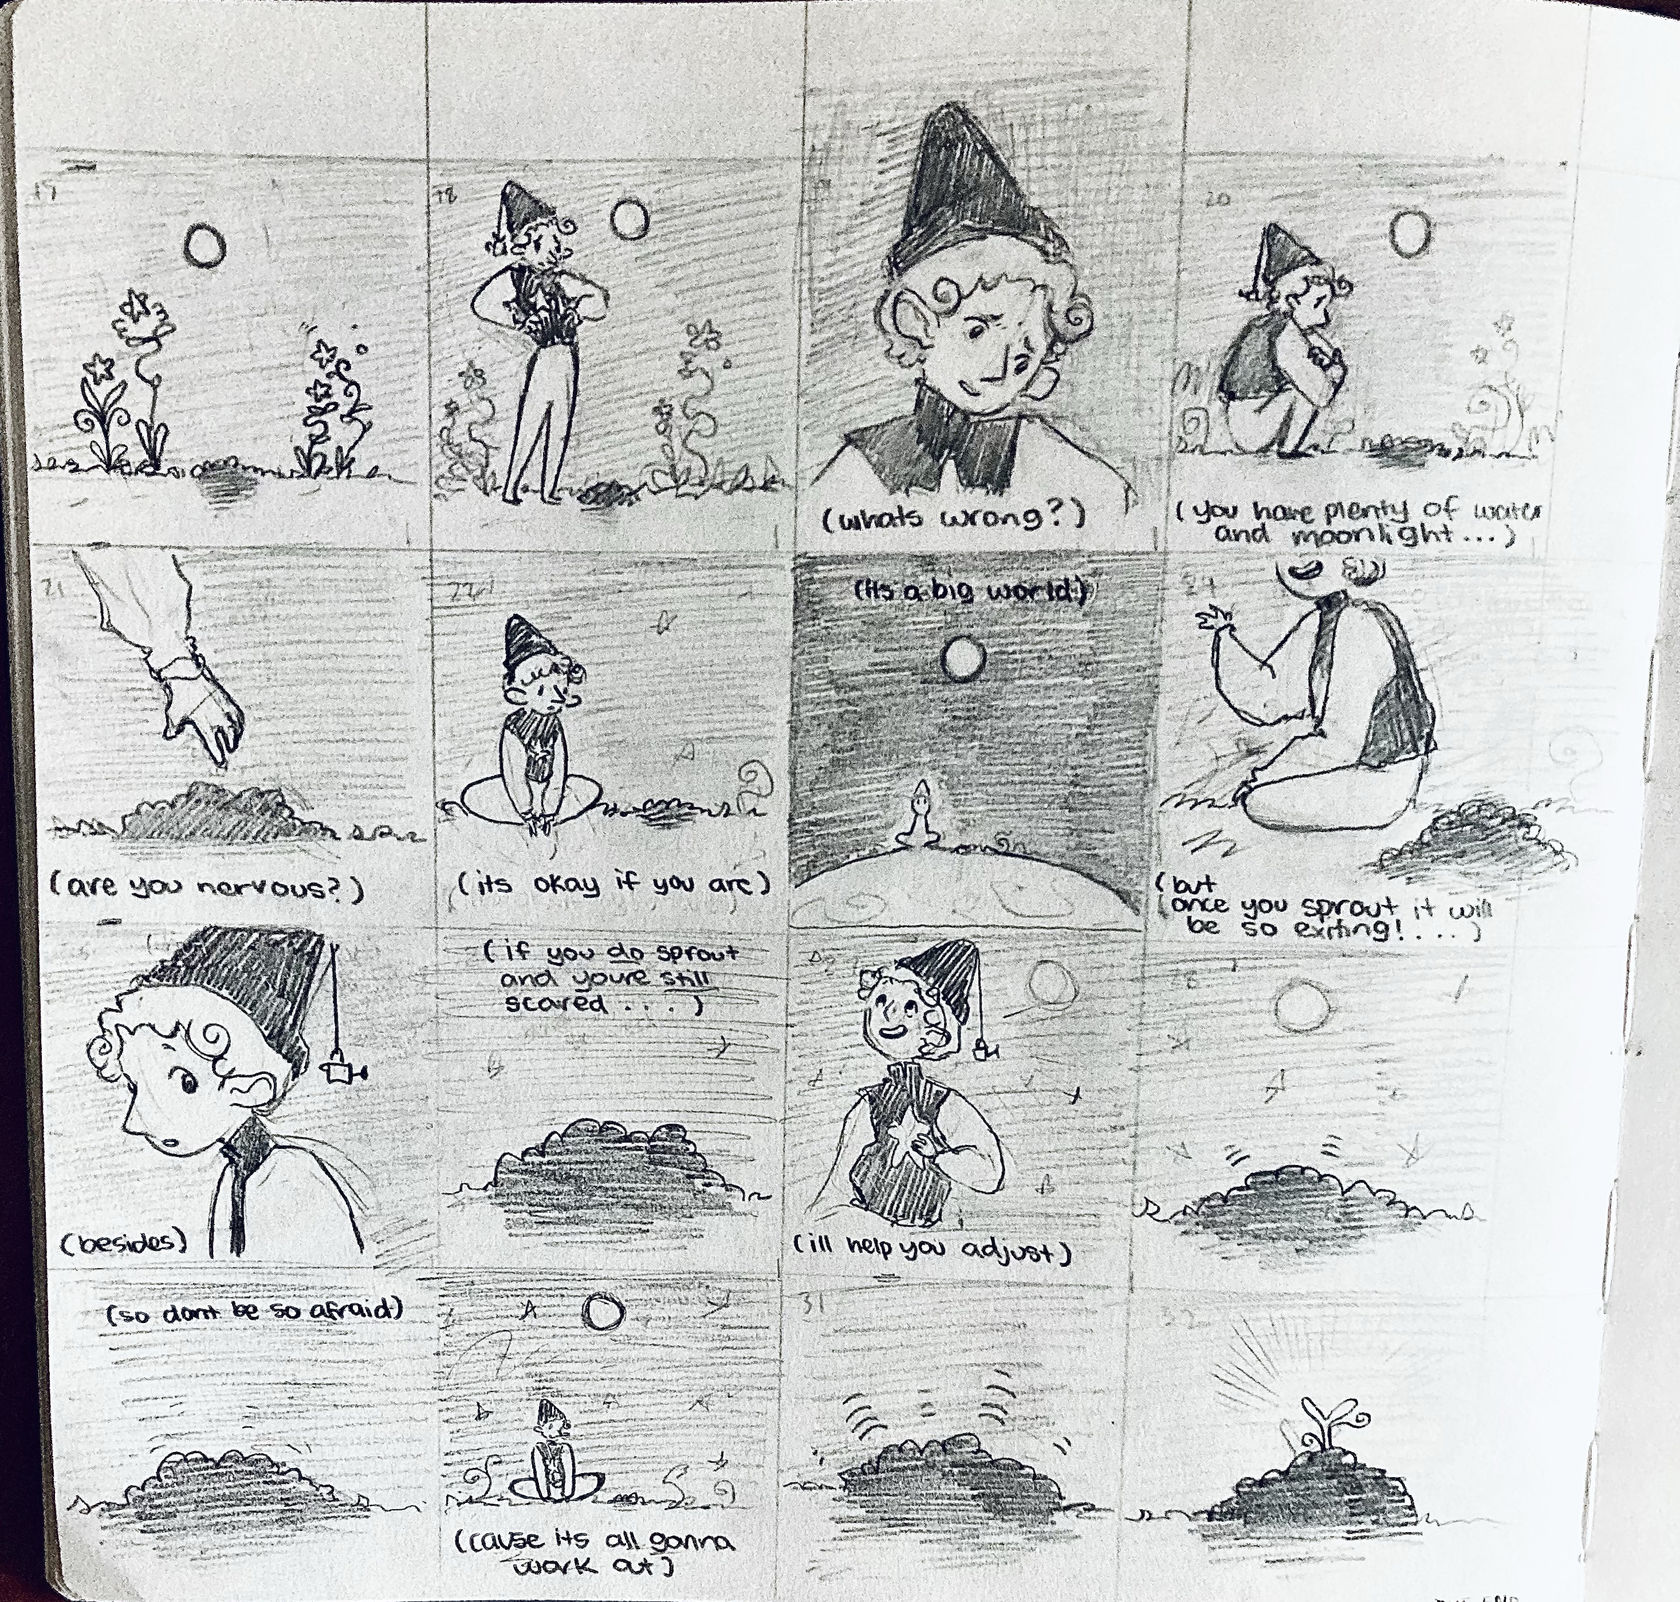 17
18
20
(whats wrong?)
(you have plenty of water
and moonlight...)
21
22
24
(its a big world)
(are you nervous?)
(its okay if you are)
(but
once you sprout it will
be so exiting!....)
(if you do sprout
and youre still
scared....)
28
(besides)
(ill help you adjust)
31
32
(so dont be so afraid)
(cause its all gonna
work out)